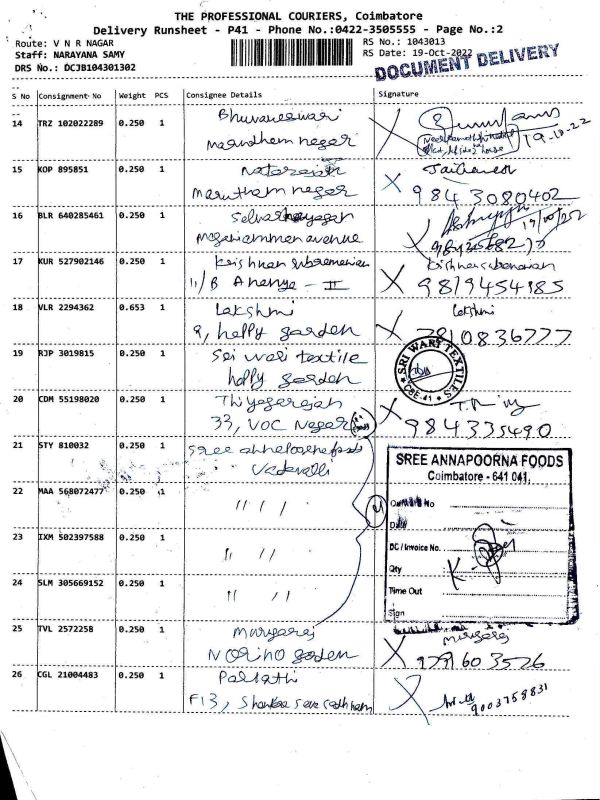 THE PROFESSIONAL COURIERS, Coimbatore
Delivery Runsheet - P41 - Phone No.:0422-3505555 - Page No.:2
Route: V N R NAGAR
Staff: NARAYANA SAMY
DRS No.: DCJB104301302
RS No.: 1043013
RS Date: 19-Oct-2022
DOCUMENT DELIVERY
S No Consignment No Weight PCS Consignee Details Signature
14 TRZ 102022289 0.250 1 Bhuvaneswari
marudham nagar
19-10-22
15 KOP 895851 0.250 1 Natarajan
marutham nagar
984 3080402
16 BLR 640285461 0.250 1
mariamman avenue
19/10/22
17 KUR 527902146 0.250 1 krishnan subramanian krishnan subramanian
11/B Ananya - II 9819454185
18 VLR 2294362 0.653 1 Lakshmi Lakshmi
9, happy garden 7810836777
19 RJP 3019815 0.250 1 Sri wari textile
happy garden
SRI WARI TEXTILES
CBE-41
20 CDM 55198020 0.250 1 Thiyagarajan
33, VOC Nagar 984335490
21 STY 810032 0.250 1 Sree annapoorna foods
Vadavalli
22 MAA 568072477 0.250 1 " "
23 IXM 502397588 0.250 1 " "
24 SLM 305669152 0.250 1 " "
4
SREE ANNAPOORNA FOODS
Coimbatore - 641 041.
No
DC / Invoice No.
Qty
Time Out
Sign
25 TVL 2572258 0.250 1 murgaraj murgaraj
NORINO garden 979160 3526
26 CGL 21004483 0.250 1 Parvathi
F13,
9003758831